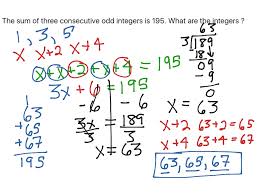 The sum of three consecutive odd integers is 195. What are the integers ?
1, 3, 5
x x+2 x+4
x + x+2 + x+4 = 195
3x + 6 = 195
-6 -6
3x = 189
3 3
x = 63
63
3 189
18↓
09
-9
0
x = 63
x+2 63+2 = 65
x+4 63+4 = 67
63, 65, 67
63
+65
+67
195